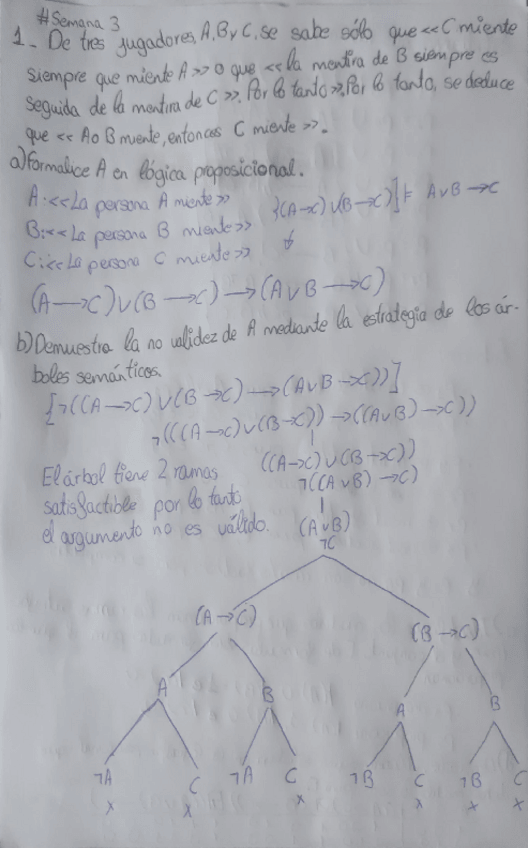 #Semana 3
1.- De tres jugadores, A, B y C, se sabe sólo que <<C miente
siempre que miente A>> o que <<la mentira de B siempre es
seguida de la mentira de C>>. Por lo tanto>>, Por lo tanto, se deduce
que <<A o B miente, entonces C miente>>.
a) Formalice A en lógica proposicional.
A: <<La persona A miente>>
B: <<La persona B miente>>
C: <<La persona C miente>>
{(A→C) ∨ (B→C)} ⊨ A∨B→C
(A→C)∨(B→C)→(A∨B→C)
b) Demuestra la no validez de A mediante la estrategia de los ár-
boles semánticos.
{¬((A→C)∨(B→C)→(A∨B→C))}
¬(((A→C)∨(B→C))→((A∨B)→C))
((A→C)∨(B→C))
¬((A∨B)→C)
El árbol tiene 2 ramas
satisfactible por lo tanto
el argumento no es válido.
(A∨B)
¬C
(A→C) (B→C)
A B A B
¬A C ¬A C ¬B C ¬B C
x x x x x x